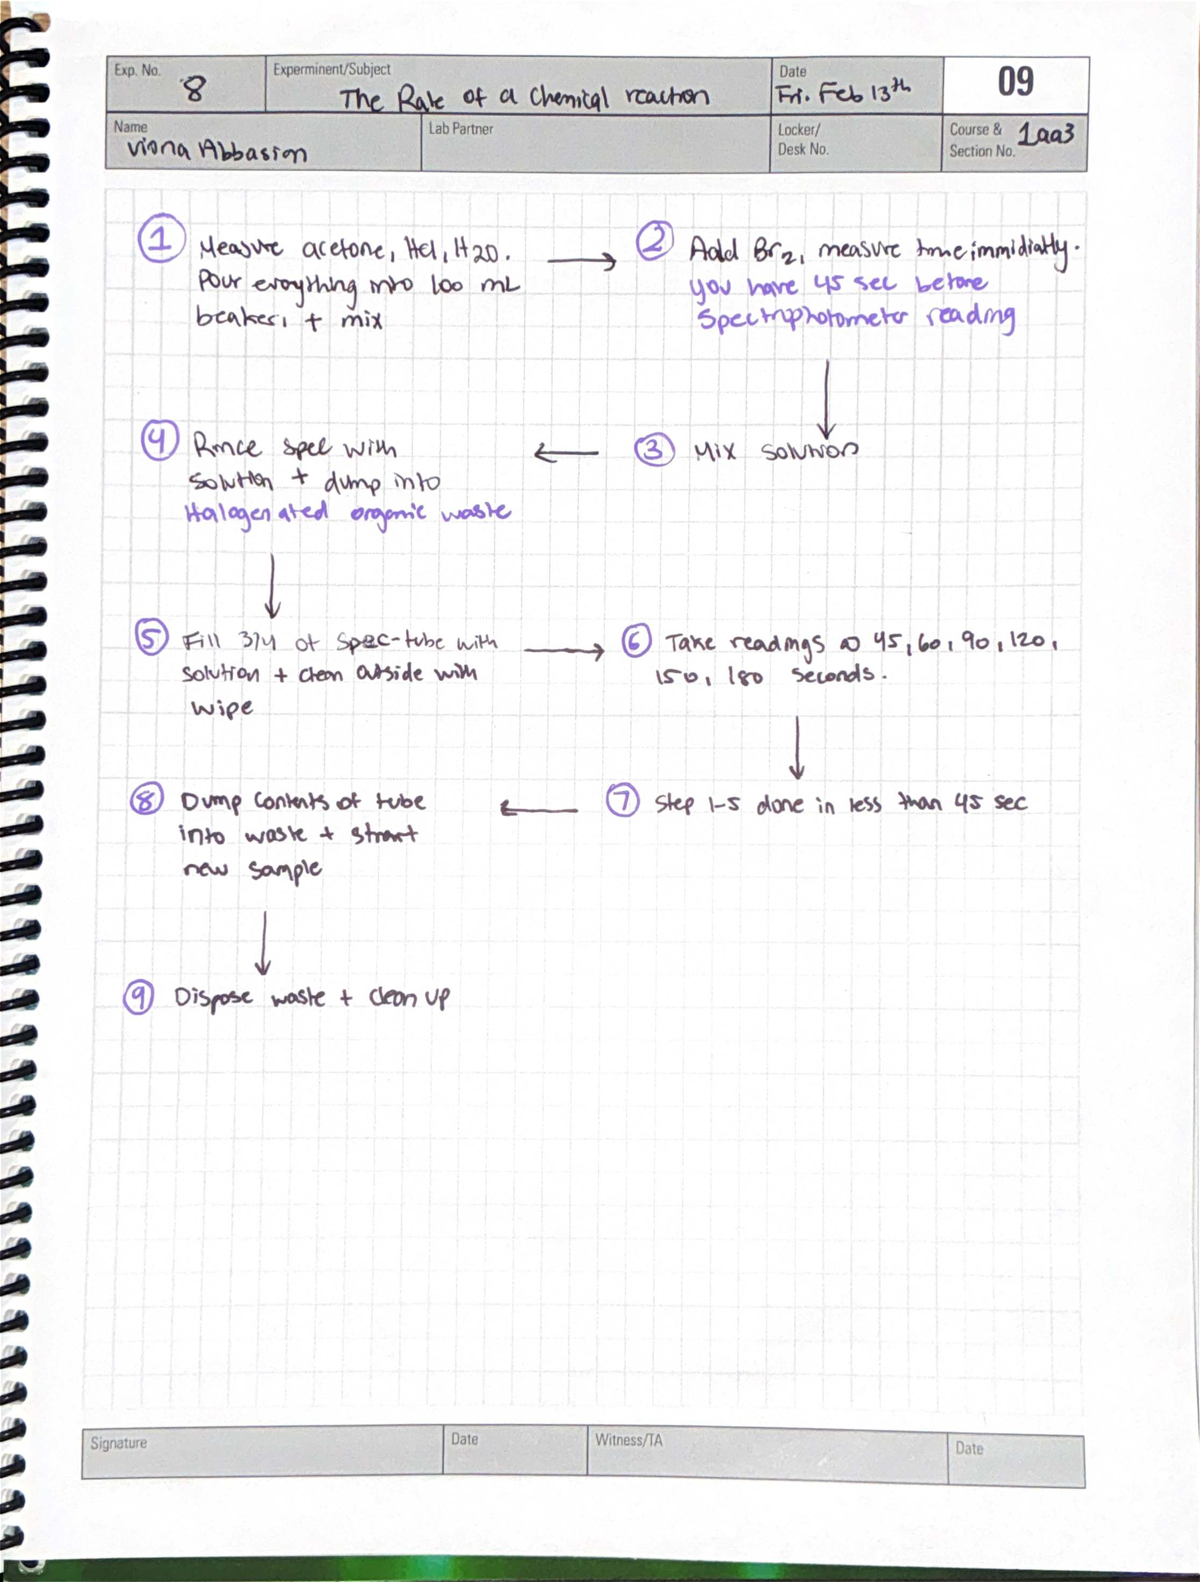 Exp. No. 8
Experminent/Subject The Rate of a Chemical reaction
Date Fri. Feb 13th
09
Name Viona Abbasion
Lab Partner
Locker/
Desk No.
Course &
Section No. 1aa3
① Measure acetone, Hcl, H2O.
Pour everything into 100 mL
beaker, + mix
② Add Br2, measure time immidiatly.
you have 45 sec before
Spectrophotometer reading
③ Mix Solution
④ Rince spec with
solution + dump into
Halogenated organic waste
⑤ Fill 3/4 of Spec-tube with
solution + clean outside with
wipe
⑥ Take readings @ 45, 60, 90, 120,
150, 180 seconds.
⑦ Step 1-5 done in less than 45 sec
⑧ Dump contents of tube
into waste + strart
new sample
⑨ Dispose waste + clean up
Signature
Date
Witness/TA
Date